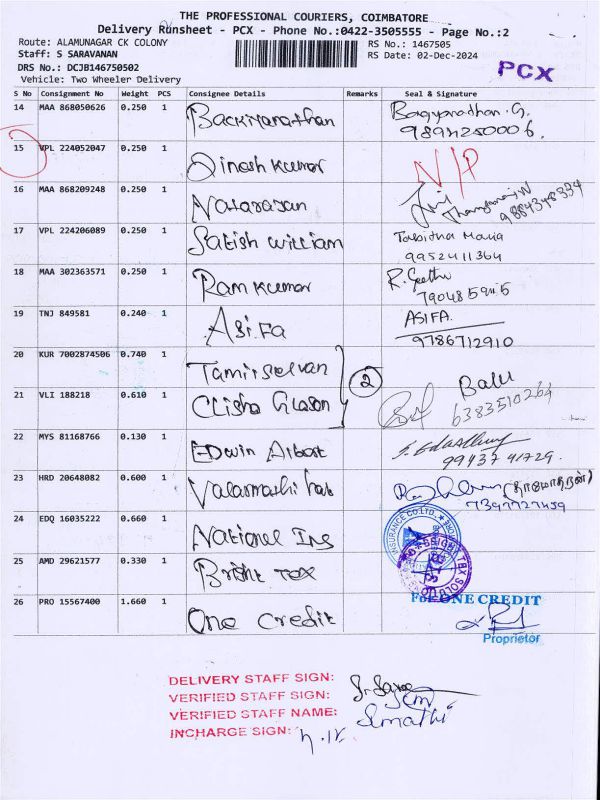 THE PROFESSIONAL COURIERS, COIMBATORE
Delivery Runsheet - PCX - Phone No.:0422-3505555 - Page No.:2
Route: ALAMUNAGAR CK COLONY
Staff: S SARAVANAN
DRS No.: DCJB146750502
Vehicle: Two Wheeler Delivery
RS No.: 1467505
RS Date: 02-Dec-2024
PCX
S No Consignment No Weight PCS Consignee Details Remarks Seal & Signature
14 MAA 868050626 0.250 1
15 VPL 224052047 0.250 1 Dinesh Kumar N/P
16 MAA 868209248 0.250 1 Natarasan
17 VPL 224206089 0.250 1 Satish william Tabitha Maria
9952411364
18 MAA 302363571 0.250 1 Ram Kumar R. Geetha
19 TNJ 849581 0.240 1 Asifa ASIFA.
9786712910
20 KUR 7002874506 0.740 1 2
21 VLI 188218 0.610 1 Balu
6383510264
22 MYS 81168766 0.130 1 Edwin
9943741729.
23 HRD 20648082 0.600 1
24 EDQ 16035222 0.660 1 National Ins
INSURANCE CO.LTD.
25 AMD 29621577 0.330 1 Bright Tex
26 PRO 15567400 1.660 1 One Credit For ONE CREDIT
Proprietor
DELIVERY STAFF SIGN:
VERIFIED STAFF SIGN:
VERIFIED STAFF NAME: Sumathi
INCHARGE SIGN: